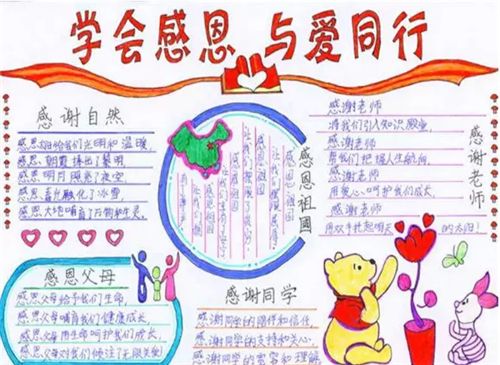 学会感恩 与爱同行
感谢自然
感恩太阳给我们光明和温暖,
感恩朝霞捧出了黎明
感恩明月照亮了夜空
感恩春光融化了冰雪,
感恩大地哺育了万物和生灵,
感恩祖国
感谢老师
感谢老师
将我们引入知识殿堂,
感谢老师
帮我们把握人生航向,
感谢老师
用爱心呵护我们成长,
感谢老师
用双手托起明天的太阳!
感恩父母
感恩父母给予我们生命,
感恩父母哺育我们健康成长,
感恩父母用生命呵护我们成长,
感恩父母对我们倾注了无限关爱!
感谢同学
感谢同学的陪伴和信任,
感谢同学的支持和关心,
感谢同学的宽容和理解